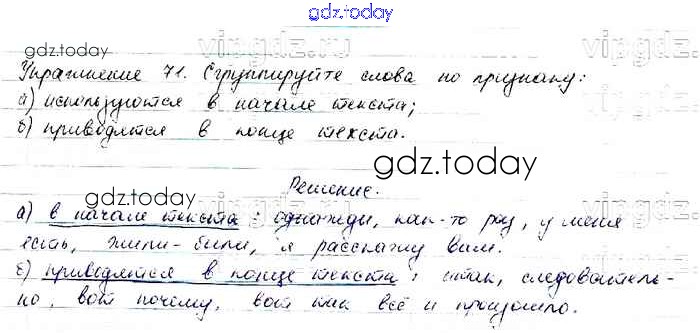 gdz.today
gdz.today vipgdz.ru
Упражнение 71. Сгруппируйте слова по признаку:
а) используются в начале текста;
б) приводятся в конце текста.
gdz.today
gdz.today Решение.
а) в начале текста: однажды, как-то раз, у меня
есть, жили-были, я расскажу вам.
б) приводятся в конце текста: итак, следователь-
но, вот почему, вот как всё и произошло.
gdz.today